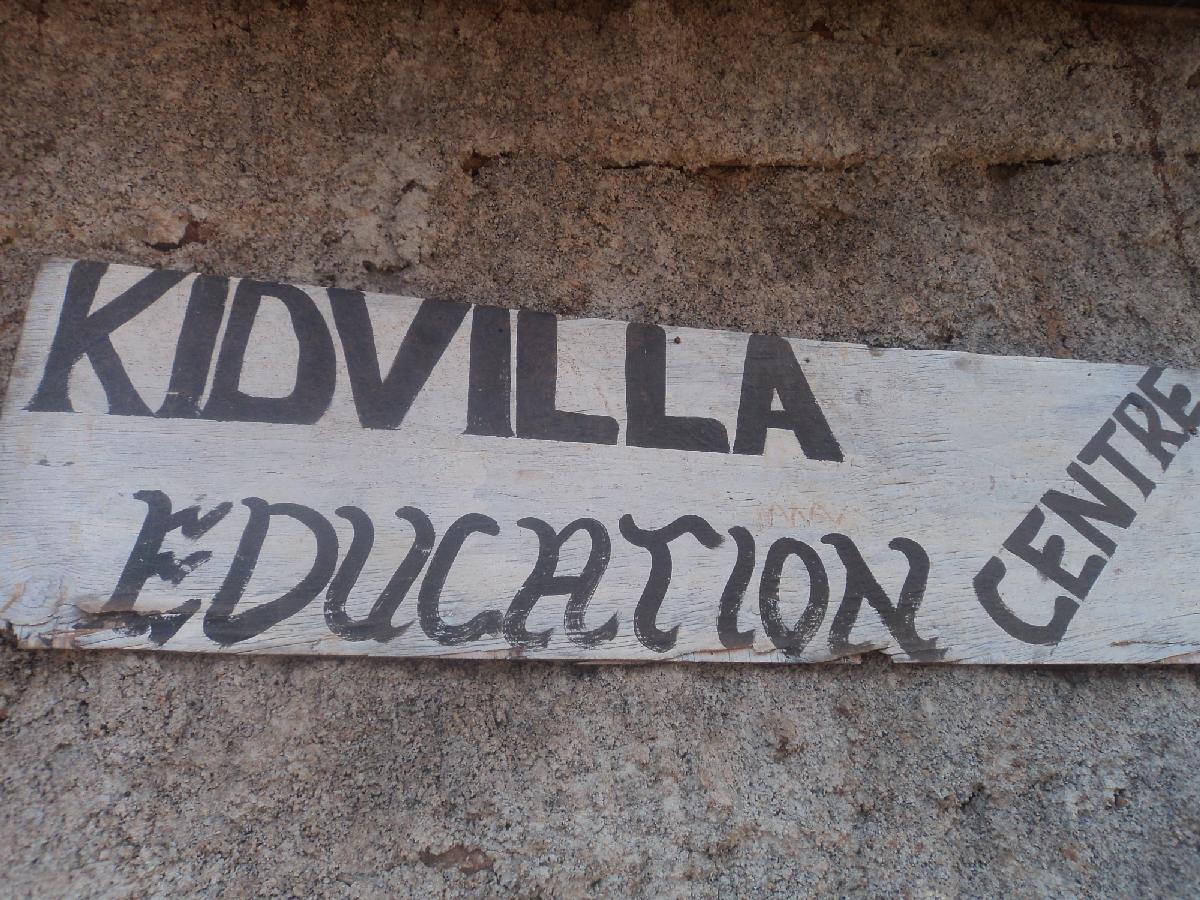 KIDVILLA
EDUCATION
CENTRE